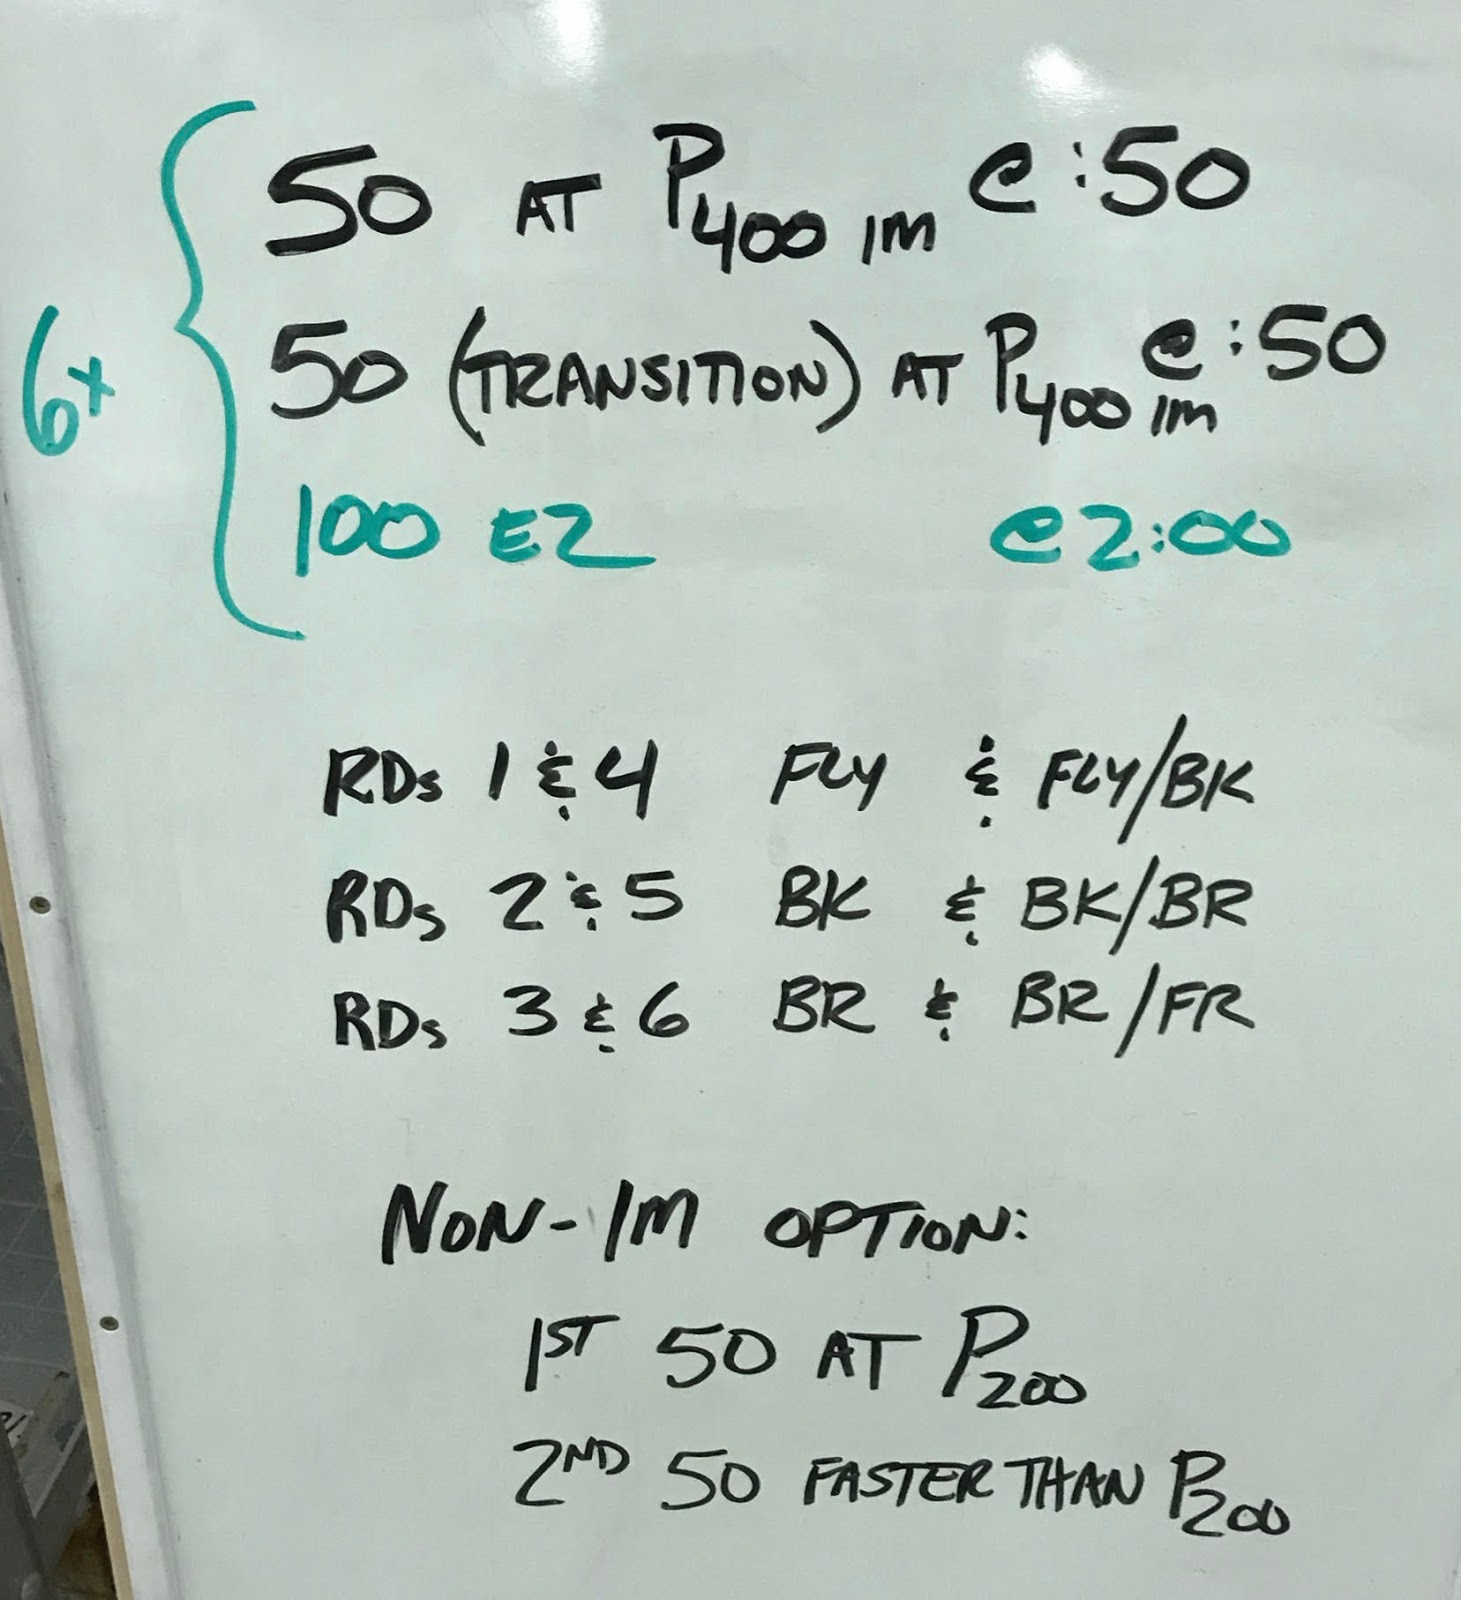 50 AT P400 IM @ :50
6x
50 (TRANSITION) AT P400 IM @ :50
100 EZ @ 2:00
RDs 1 & 4 FLY & FLY/BK
RDs 2 & 5 BK & BK/BR
RDs 3 & 6 BR & BR/FR
NON-IM OPTION:
1ST 50 AT P200
2ND 50 FASTER THAN P200